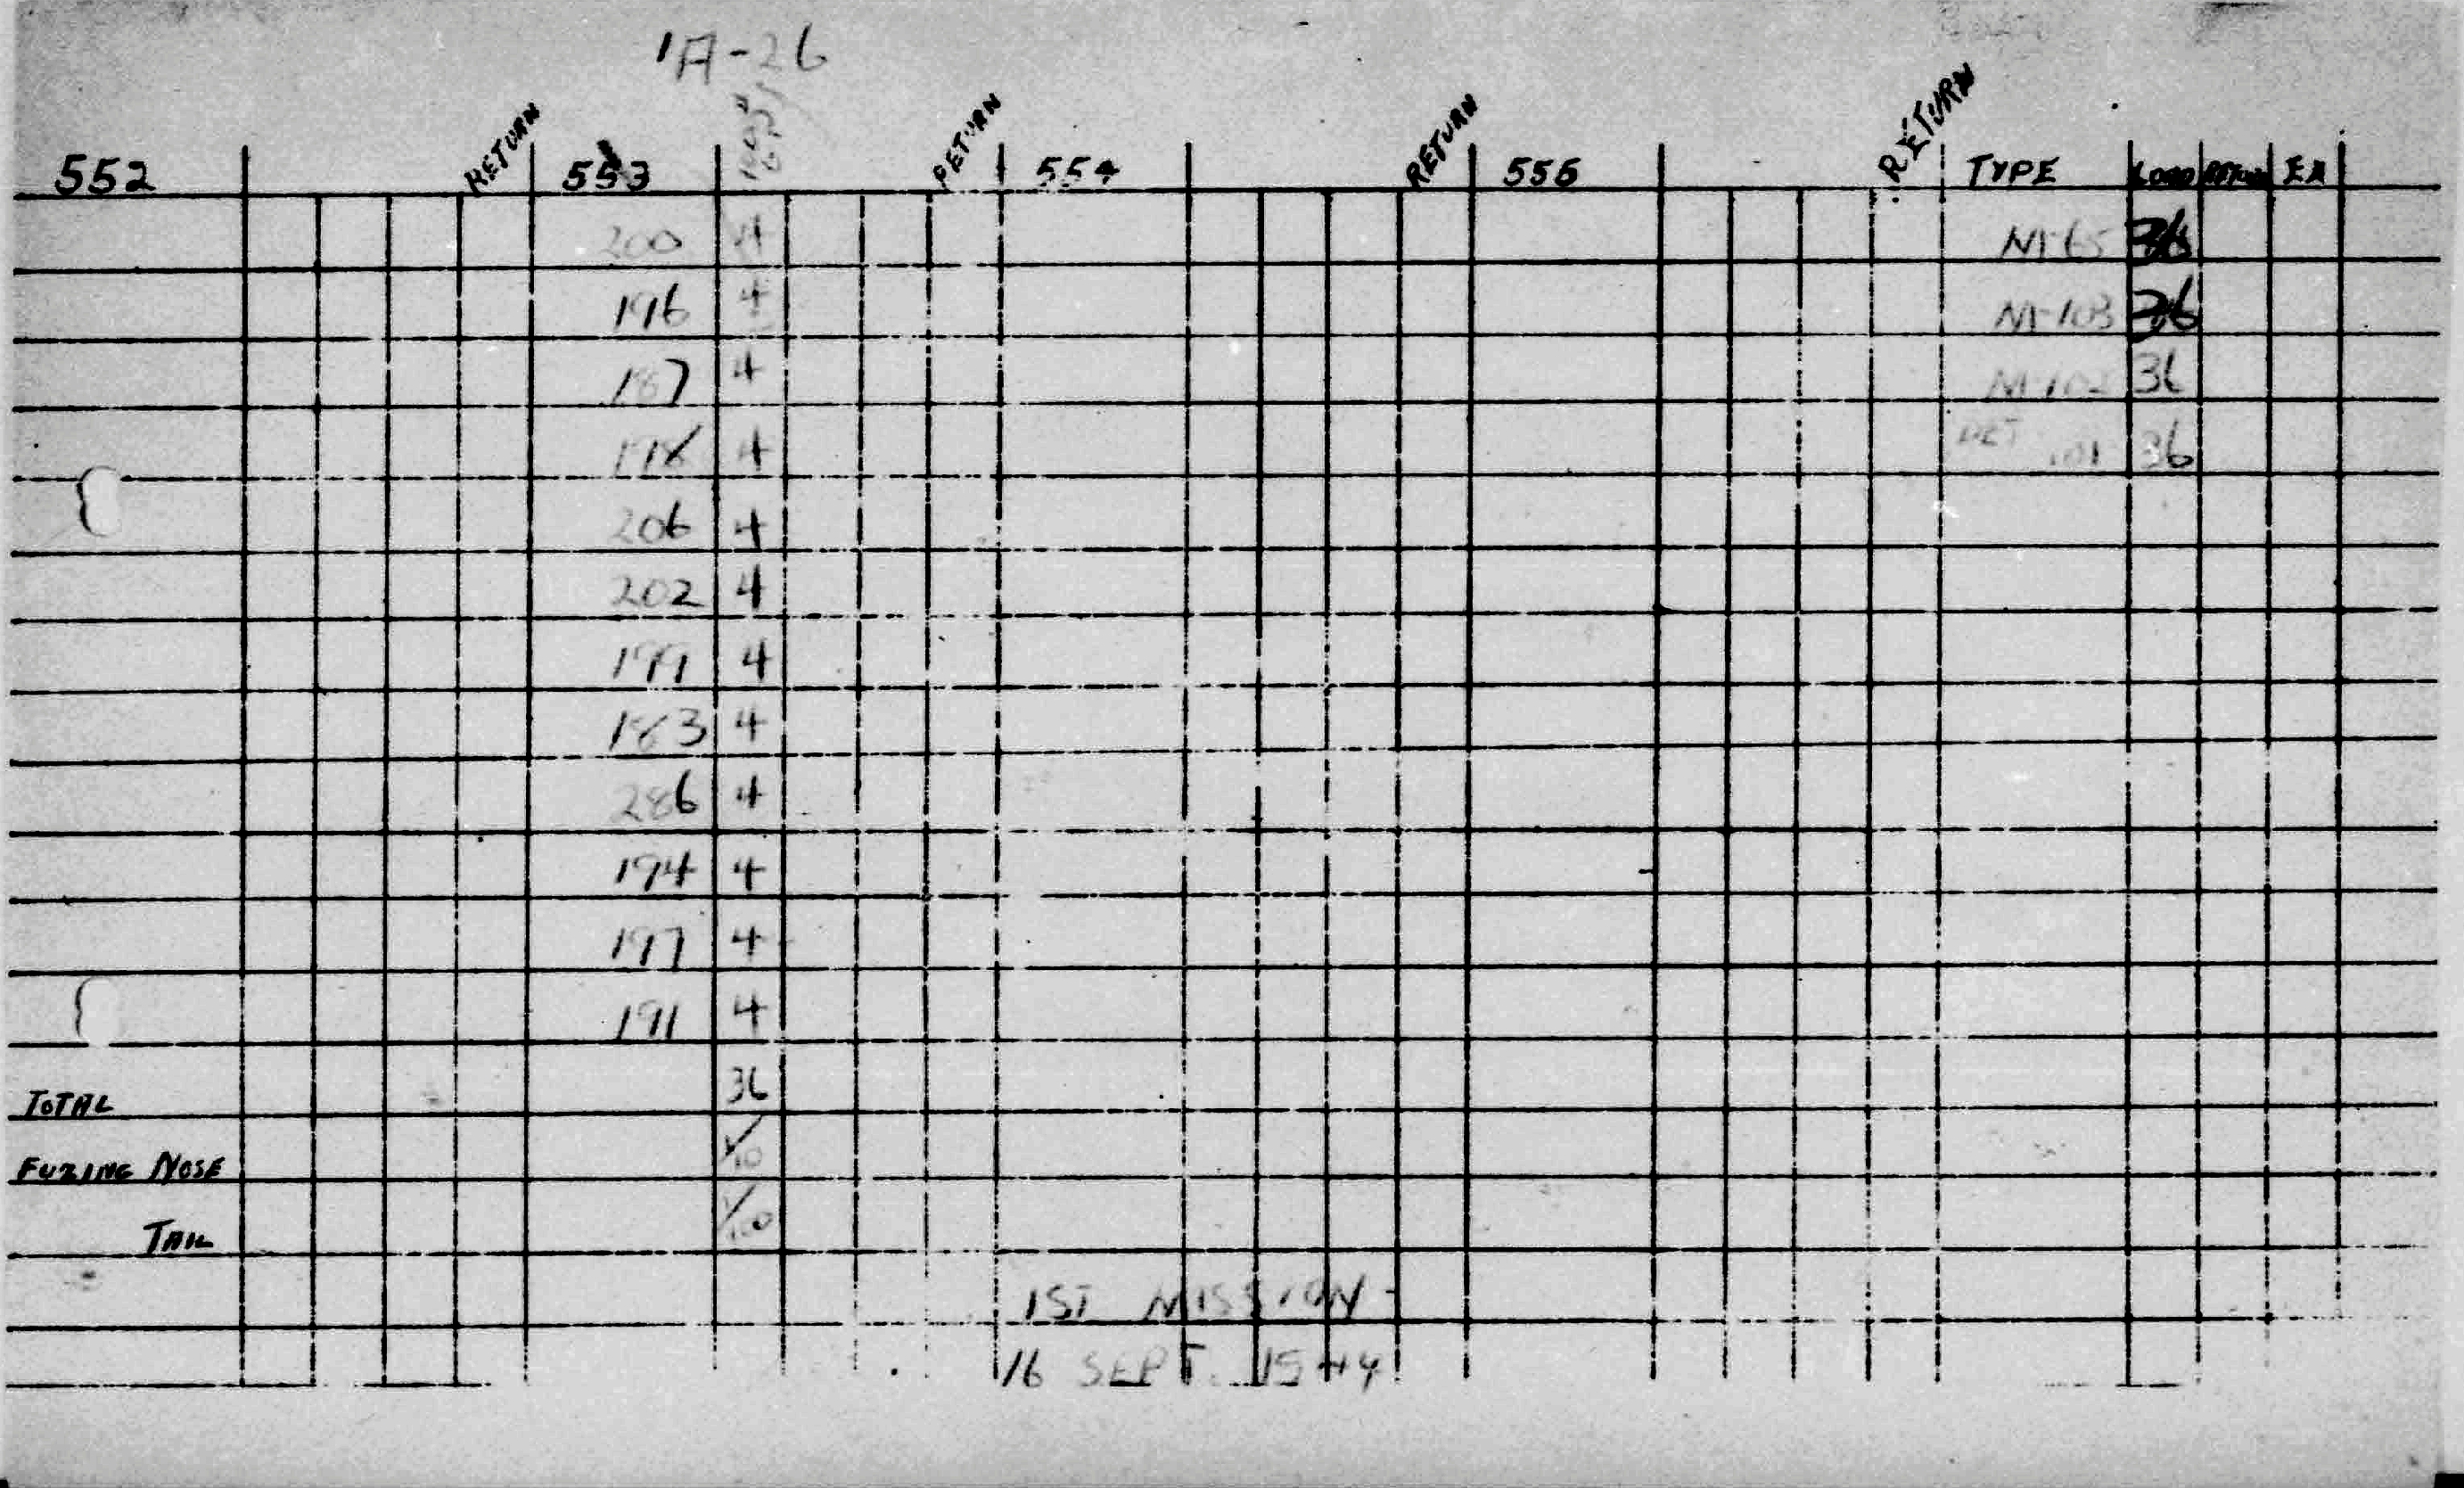 1A-26
552 RETURN 553 RETURN 554 RETURN 555 RETURN TYPE LOAD RETURN EX
200 4 M-65 36
196 4 M-103 36
187 4 M-102 36
4 DET 101 36
206 4
202 4
199 4
183 4
286 4
194 4
197 4
191 4
TOTAL 36
FUZING NOSE 1/10
TAIL 1/100
1ST MISSION -
16 SEPT. 1944